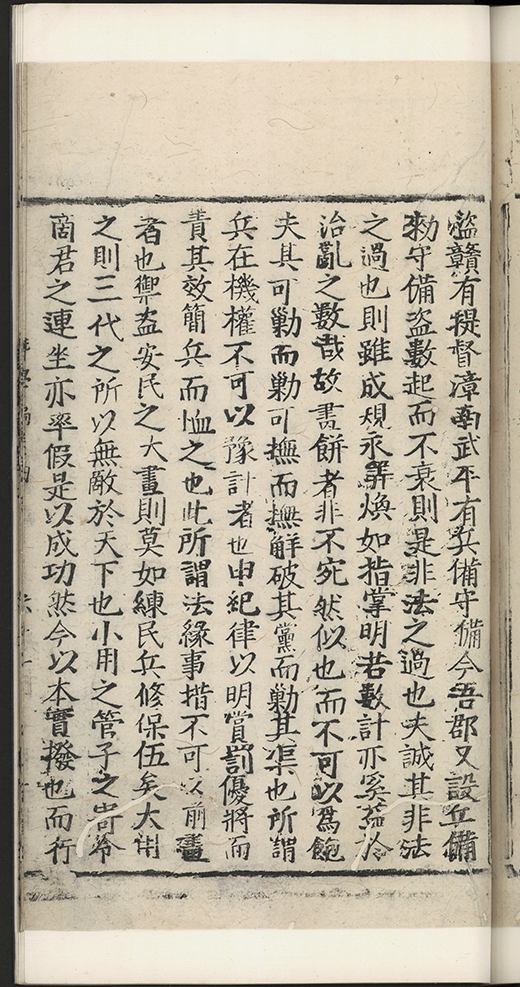 盜贛有提督漳南武平有兵備守備今吾郡又設兵備
勑守備盜數起而不衰則是非法之過也夫誠其非法
之過也則雖成規永算煥如指掌明若數計亦奚益於
治亂之數哉故畫餅者非不宛然似也而不可以為飽
夫其可勦而勦可撫而撫解破其黨而勦其渠也所謂
兵在機權不可以豫計者也申紀律以明賞罰優將而
責其效簡兵而恤之也此所謂法緣事措不可以前畫
者也禦盜安民之大畫則莫如練民兵修保伍矣大用
之則三代之所以無敵於天下也小用之管子之寄令
商君之連坐亦率假是以成功然今以本實撥也而行